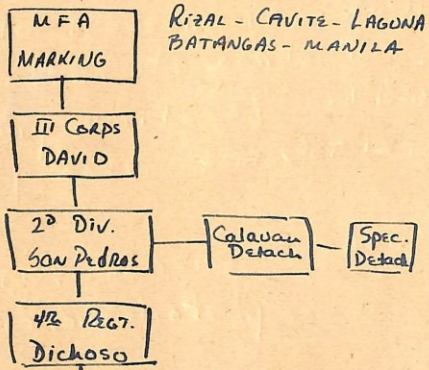 MFA
MARKING
RIZAL - CAVITE - LAGUNA
BATANGAS - MANILA
III CORPS
DAVID
2D Div.
SAN PEDROS
Calauan
Detach
Spec.
Detach
4th REGT.
Dichoso